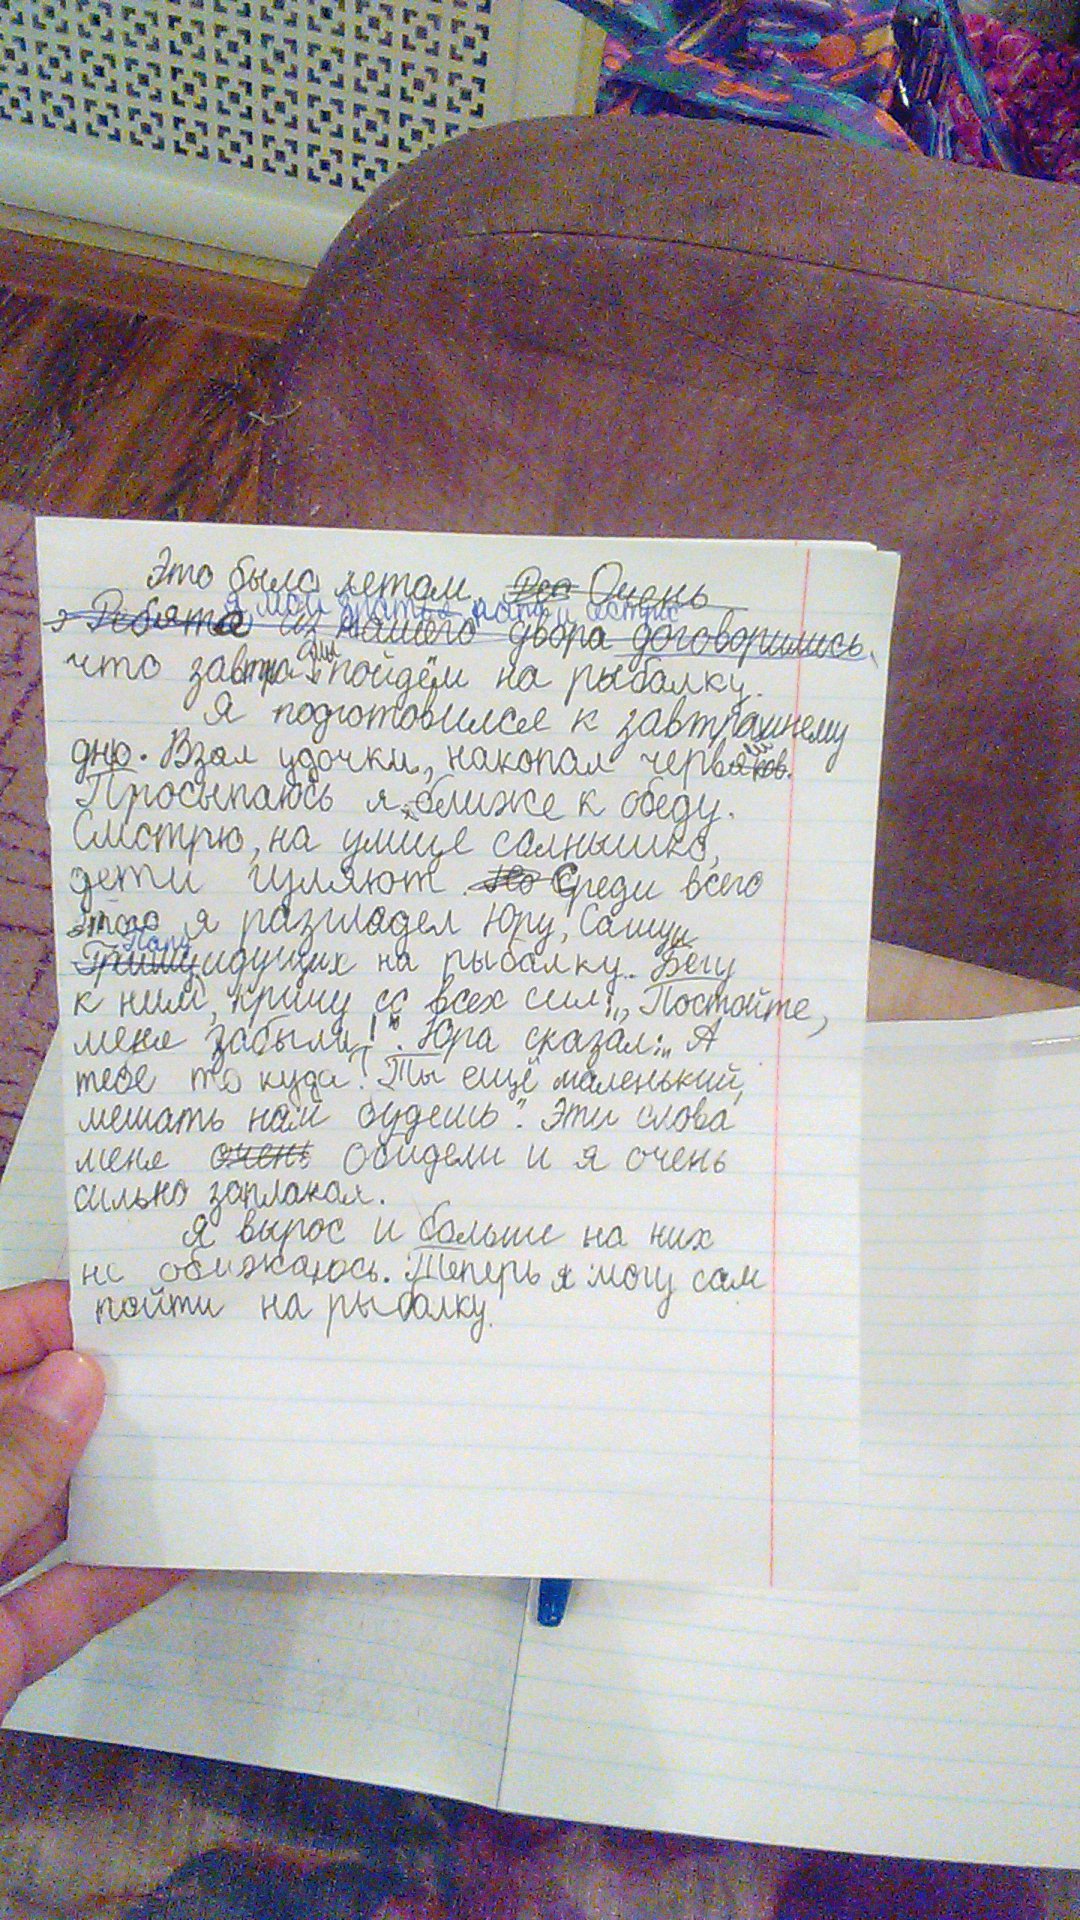 Это было летом. Очень
Я мои братья папа и
Ребята из нашего двора договорились,
что завтра они пойдём на рыбалку.
Я подготовился к завтрашнему
дню. Взял удочки, накопал червяков.
Просыпаюсь я ближе к обеду.
Смотрю, на улице солнышко,
дети гуляют. Но Среди всего
этого я разглядел Юру, Сашу и
Папу
Гришу идущих на рыбалку. Бегу
к ним, кричу со всех сил: „Постойте,
меня забыли!". Юра сказал: „А
тебе то куда? Ты ещё маленький,
мешать нам будешь". Эти слова
меня очень обидели и я очень
сильно заплакал.
Я вырос и больше на них
не обижаюсь. Теперь я могу сам
пойти на рыбалку.